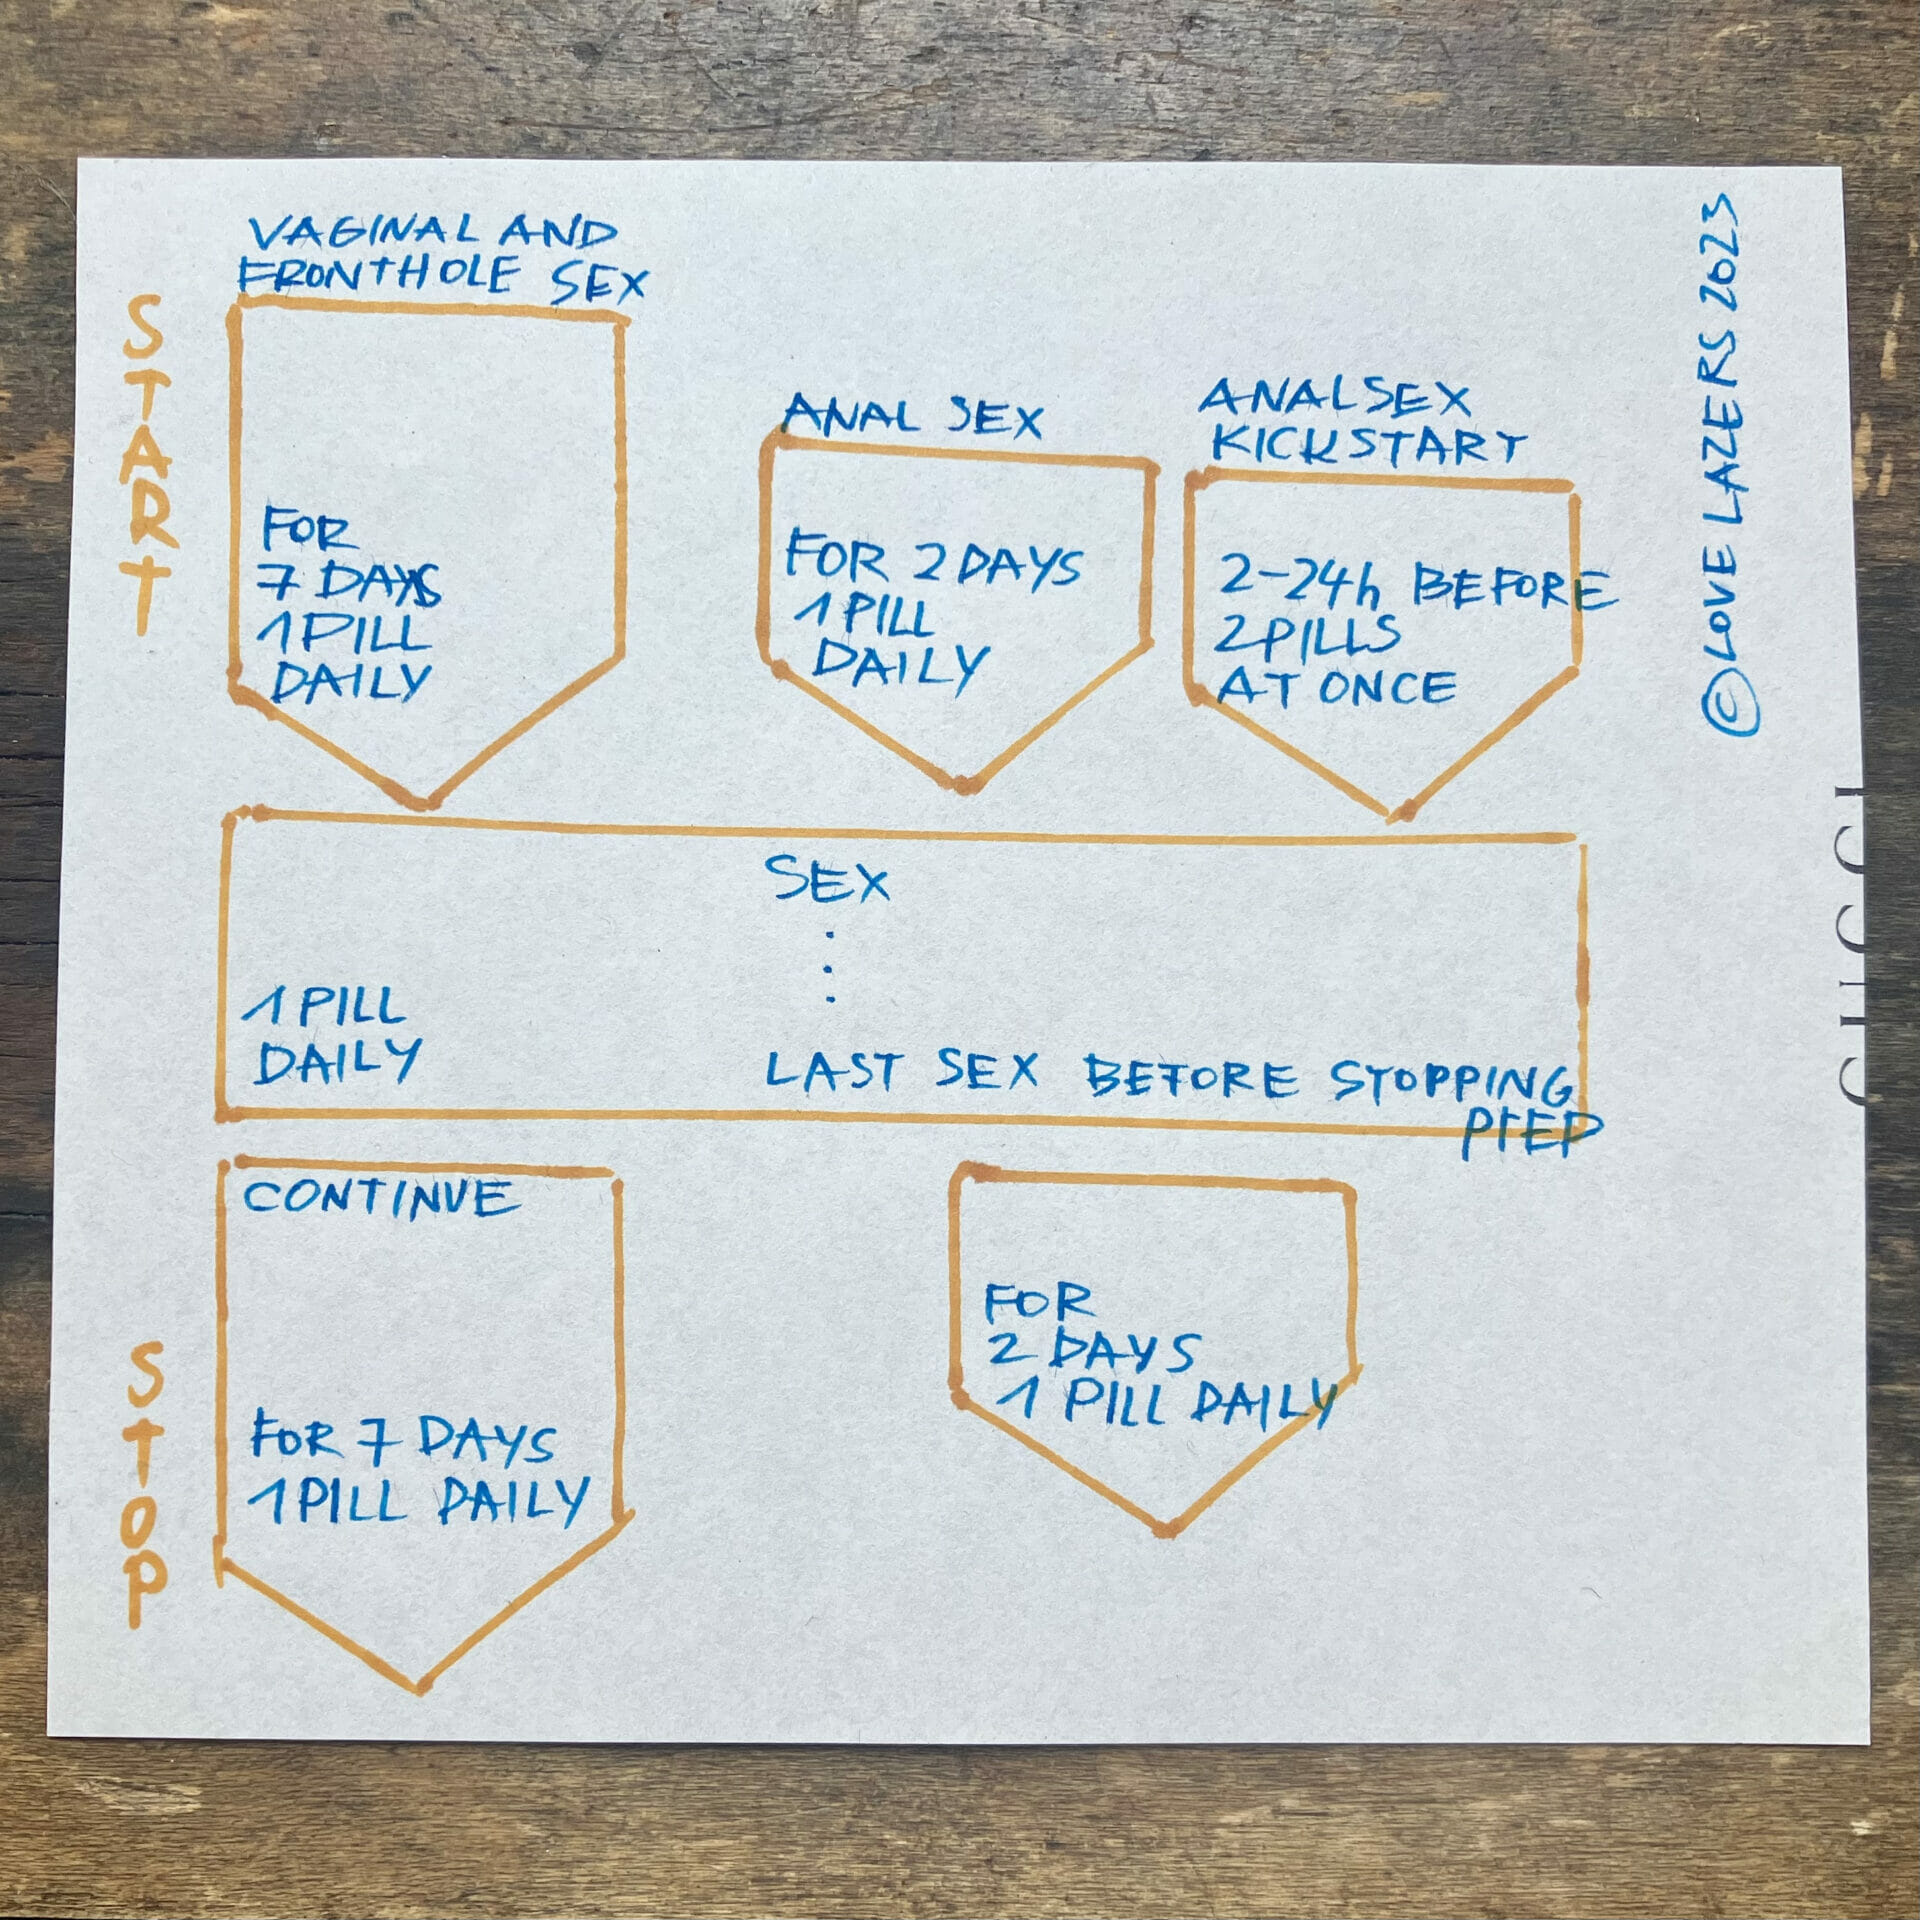 START
VAGINAL AND
FRONTHOLE SEX
FOR
7 DAYS
1 PILL
DAILY
ANAL SEX
FOR 2 DAYS
1 PILL
DAILY
ANAL SEX
KICKSTART
2-24h BEFORE
2 PILLS
AT ONCE
© LOVE LAZERS 2023
SEX
1 PILL
DAILY
LAST SEX BEFORE STOPPING
PrEP
STOP
CONTINUE
FOR 7 DAYS
1 PILL DAILY
FOR
2 DAYS
1 PILL DAILY